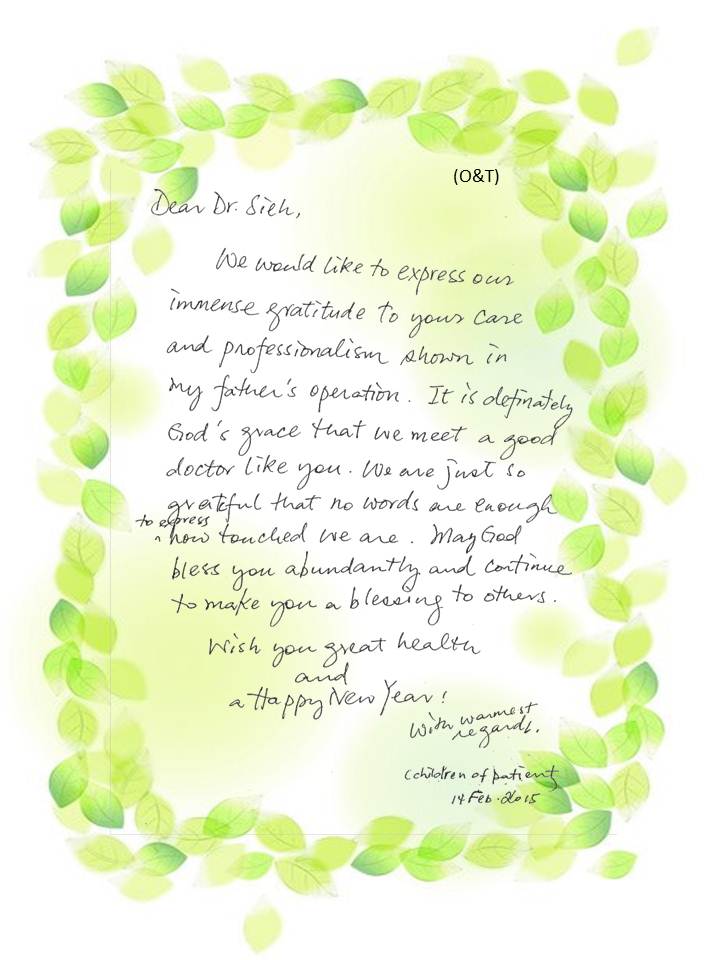 (O&T)
Dear Dr. Sieh,
We would like to express our
immense gratitude to your care
and professionalism shown in
my father's operation. It is definately
God's grace that we meet a good
doctor like you. We are just so
grateful that no words are enough
to express
^ how touched we are. May God
bless you abundantly and continue
to make you a blessing to others.
Wish you great health
and
a Happy New Year!
With warmest
regards.
(children of patient)
14 Feb. 2015